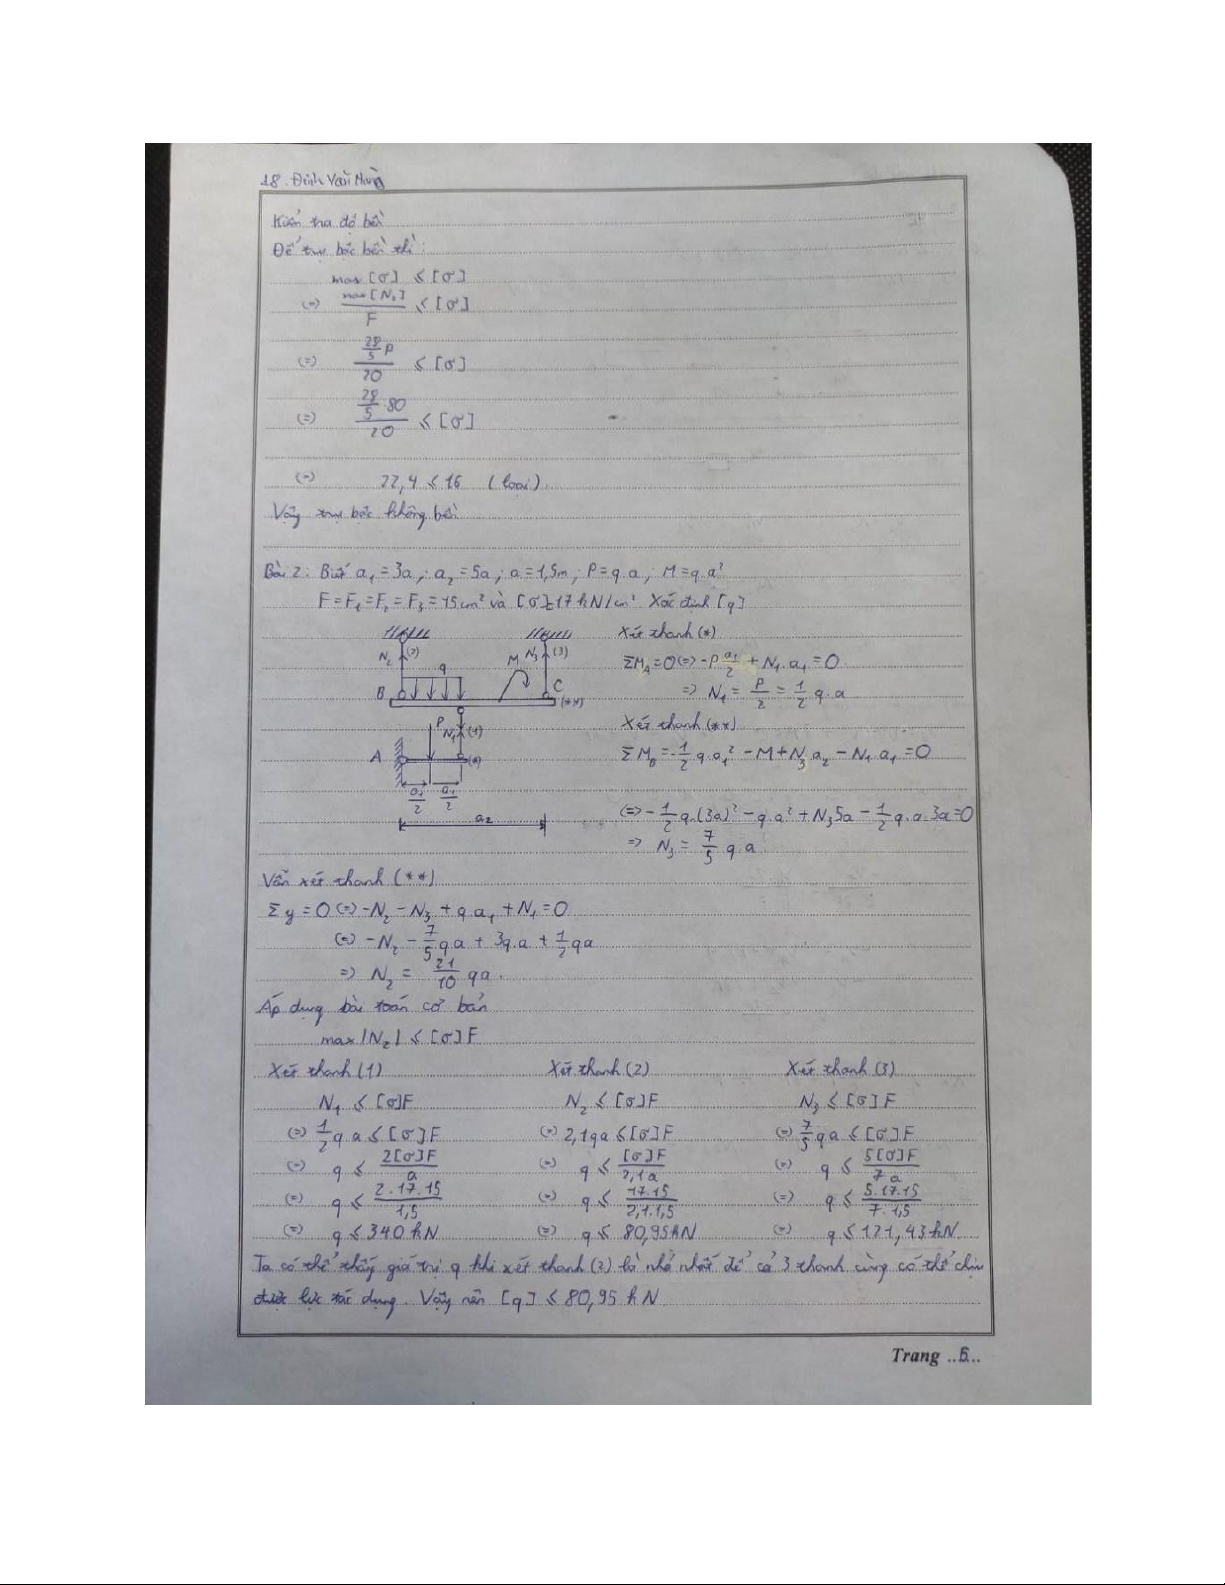 18. Đinh Văn
Kiểm tra độ bền
Để trụ bậc bền thì:
max [σ] ≤ [σ]
(=) max [N₂] / F ≤ [σ]
(=) 28/5 P / 20 ≤ [σ]
(=) 28/5 . 80 / 20 ≤ [σ]
(=) 22,4 ≤ 16 (loại).
Vậy trụ bậc không bền
Bài 2: Biết a₁ = 3a ; a₂ = 5a ; a = 1,5m ; P = q.a ; M = q.a²
F = F₁ = F₂ = F₃ = 15 cm² và [σ] = 17 kN/cm² Xác định [q]
N₂ (2) q M N₃ (3)
B C (**)
P N₁ (1)
A (*)
a₁/2 a₁/2
a₂
Xét thanh (*)
ΣM_A = 0 (=) -P a₁/2 + N₁.a₁ = 0
=) N₁ = P/2 = 1/2 q.a
Xét thanh (**)
ΣM_B = -1/2 q.a₁² - M + N₃ a₂ - N₁.a₁ = 0
(=) -1/2 q.(3a)² - q.a² + N₃ 5a - 1/2 q.a.3a = 0
=) N₃ = 7/5 q.a
Vẫn xét thanh (**)
Σy = 0 (=) -N₂ - N₃ + q.a₁ + N₁ = 0
(=) -N₂ - 7/5 qa + 3q.a + 1/2 qa
=) N₂ = 21/10 qa.
Áp dụng bài toán cơ bản
max |N_z| ≤ [σ] F
Xét thanh (1) Xét thanh (2) Xét thanh (3)
N₁ ≤ [σ]F N₂ ≤ [σ]F N₃ ≤ [σ] F
(=) 1/2 q.a ≤ [σ] F (=) 2,1qa ≤ [σ]F (=) 7/5 qa ≤ [σ] F
(=) q ≤ 2[σ]F / a (=) q ≤ [σ]F / 2,1a (=) q ≤ 5[σ]F / 7a
(=) q ≤ 2.17.15 / 1,5 (=) q ≤ 17.15 / 2,1.1,5 (=) q ≤ 5.17.15 / 7.1,5
(=) q ≤ 340 kN (=) q ≤ 80,95kN (=) q ≤ 121,43 kN
Ta có thể thấy giá trị q khi xét thanh (2) là nhỏ nhất để cả 3 thanh cùng có thể chịu
được lực tác dụng. Vậy nên [q] ≤ 80,95 kN
Trang ..5...